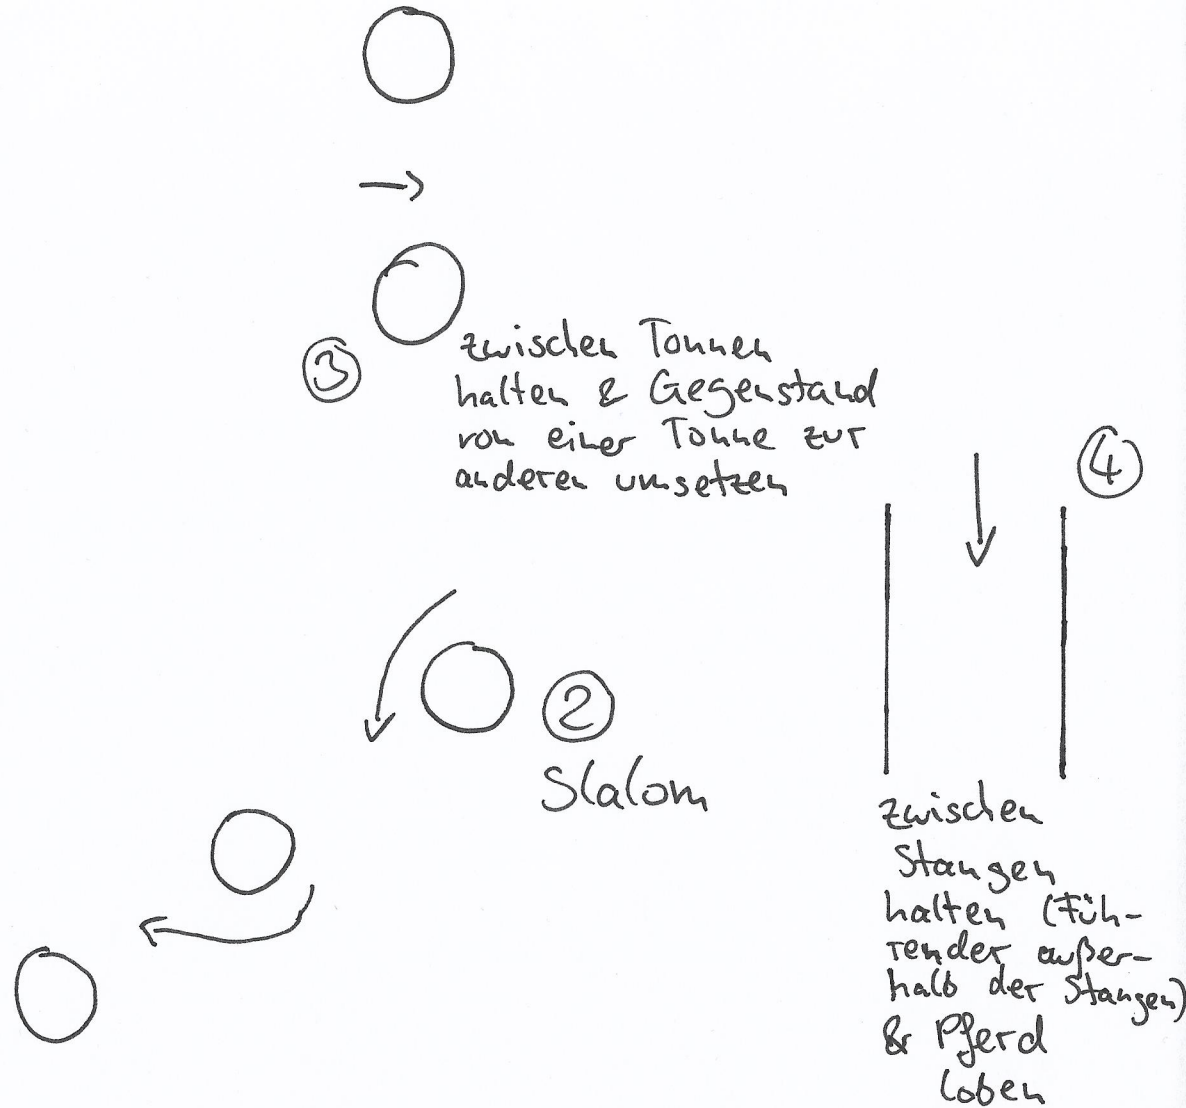 ③
zwischen Tonnen
halten & Gegenstand
von einer Tonne zur
anderen umsetzen
④
②
Slalom
zwischen
Stangen
halten (Füh-
render außer-
halb der Stangen)
& Pferd
loben